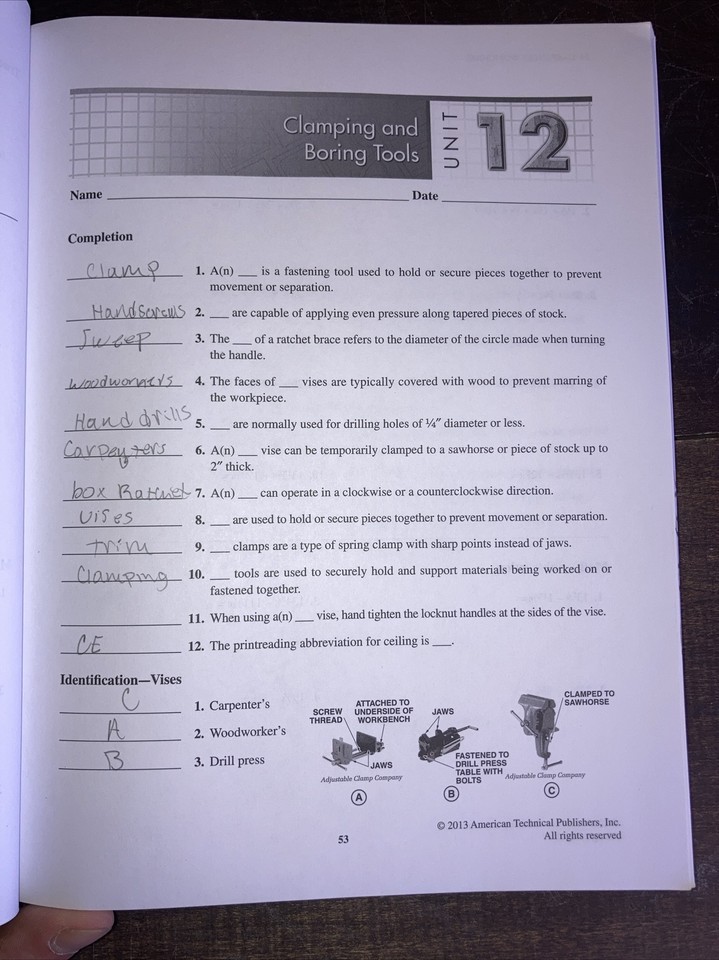 Clamping and
Boring Tools
UNIT 12
Name Date
Completion
Clamp 1. A(n) ___ is a fastening tool used to hold or secure pieces together to prevent
movement or separation.
Handscrews 2. ___ are capable of applying even pressure along tapered pieces of stock.
Sweep 3. The ___ of a ratchet brace refers to the diameter of the circle made when turning
the handle.
woodworkers 4. The faces of ___ vises are typically covered with wood to prevent marring of
the workpiece.
Hand drills 5. ___ are normally used for drilling holes of ¼″ diameter or less.
Carpenters 6. A(n) ___ vise can be temporarily clamped to a sawhorse or piece of stock up to
2″ thick.
box Ratchet 7. A(n) ___ can operate in a clockwise or a counterclockwise direction.
Vises 8. ___ are used to hold or secure pieces together to prevent movement or separation.
trim 9. ___ clamps are a type of spring clamp with sharp points instead of jaws.
Clamping 10. ___ tools are used to securely hold and support materials being worked on or
fastened together.
11. When using a(n) ___ vise, hand tighten the locknut handles at the sides of the vise.
CE 12. The printreading abbreviation for ceiling is ___.
Identification—Vises
C 1. Carpenter's
A 2. Woodworker's
B 3. Drill press
SCREW
THREAD
ATTACHED TO
UNDERSIDE OF
WORKBENCH
JAWS
Adjustable Clamp Company
A
JAWS
FASTENED TO
DRILL PRESS
TABLE WITH
BOLTS
B
CLAMPED TO
SAWHORSE
Adjustable Clamp Company
C
© 2013 American Technical Publishers, Inc.
All rights reserved
53